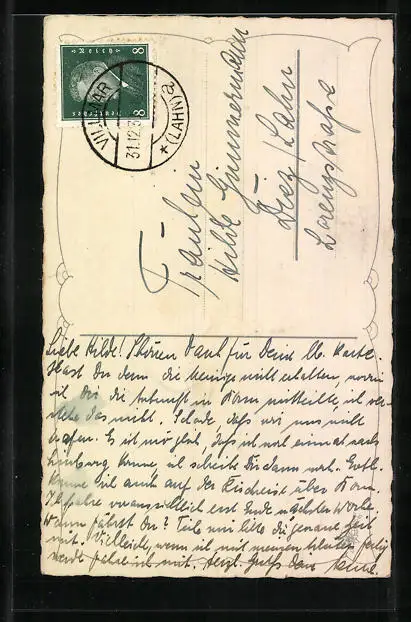 8 Deutsches Reich 8
VILLMAR
31.12.3
* (LAHN) a
Fräulein
Hilde Zimmermann
Diez/Lahn
Lorenzstraße
Liebe Hilde! Schönen Dank für Deine lb. Karte.
Hast Du denn die meinige nicht erhalten, worin
ich Dir die Ankunft in mitteilte, ich
das nicht. Schade, daß wir uns nicht
trafen. Es ist möglich, daß ich noch einmal nach
Limburg komme, ich schreibe Dir dann noch. Evtl.
komme ich auch auf der Rückreise über
Ich fahre voraussichtlich erst Ende nächster Woche.
Wann fährst Du? Teile mir bitte die genaue Zeit
mit. Vielleicht, wenn ich mit meinen fertig
werde fahre ich mit. Herzl. Grüße Deine